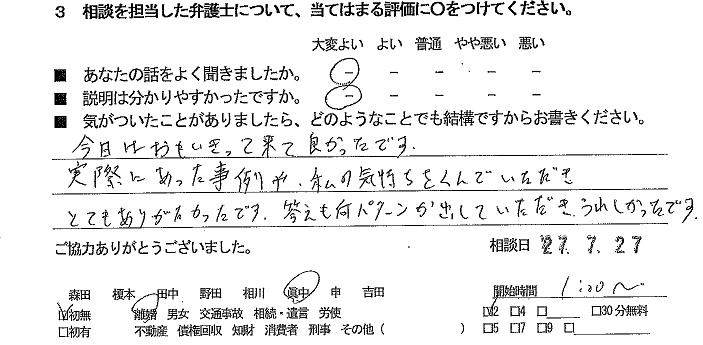 3 相談を担当した弁護士について、当てはまる評価に〇をつけてください。
大変よい よい 普通 やや悪い 悪い
■ あなたの話をよく聞きましたか。 － － － － －
■ 説明は分かりやすかったですか。 － － － － －
■ 気がついたことがありましたら、どのようなことでも結構ですからお書きください。
今日はおもいきって来て良かったです.
実際にあった事例や、私の気持ちをくんでいただき
とてもありがたかったです. 答えも何パターンか出していただき、うれしかったです.
ご協力ありがとうございました。 相談日 27. 7. 27
森田 榎本 田中 野田 相川 眞中 申 吉田 開始時間 1:00～
☑初無 離婚 男女 交通事故 相続・遺言 労使 ☑2 □4 □____ □30分無料
□初有 不動産 債権回収 知財 消費者 刑事 その他（ ） □5 □7 □9 □____